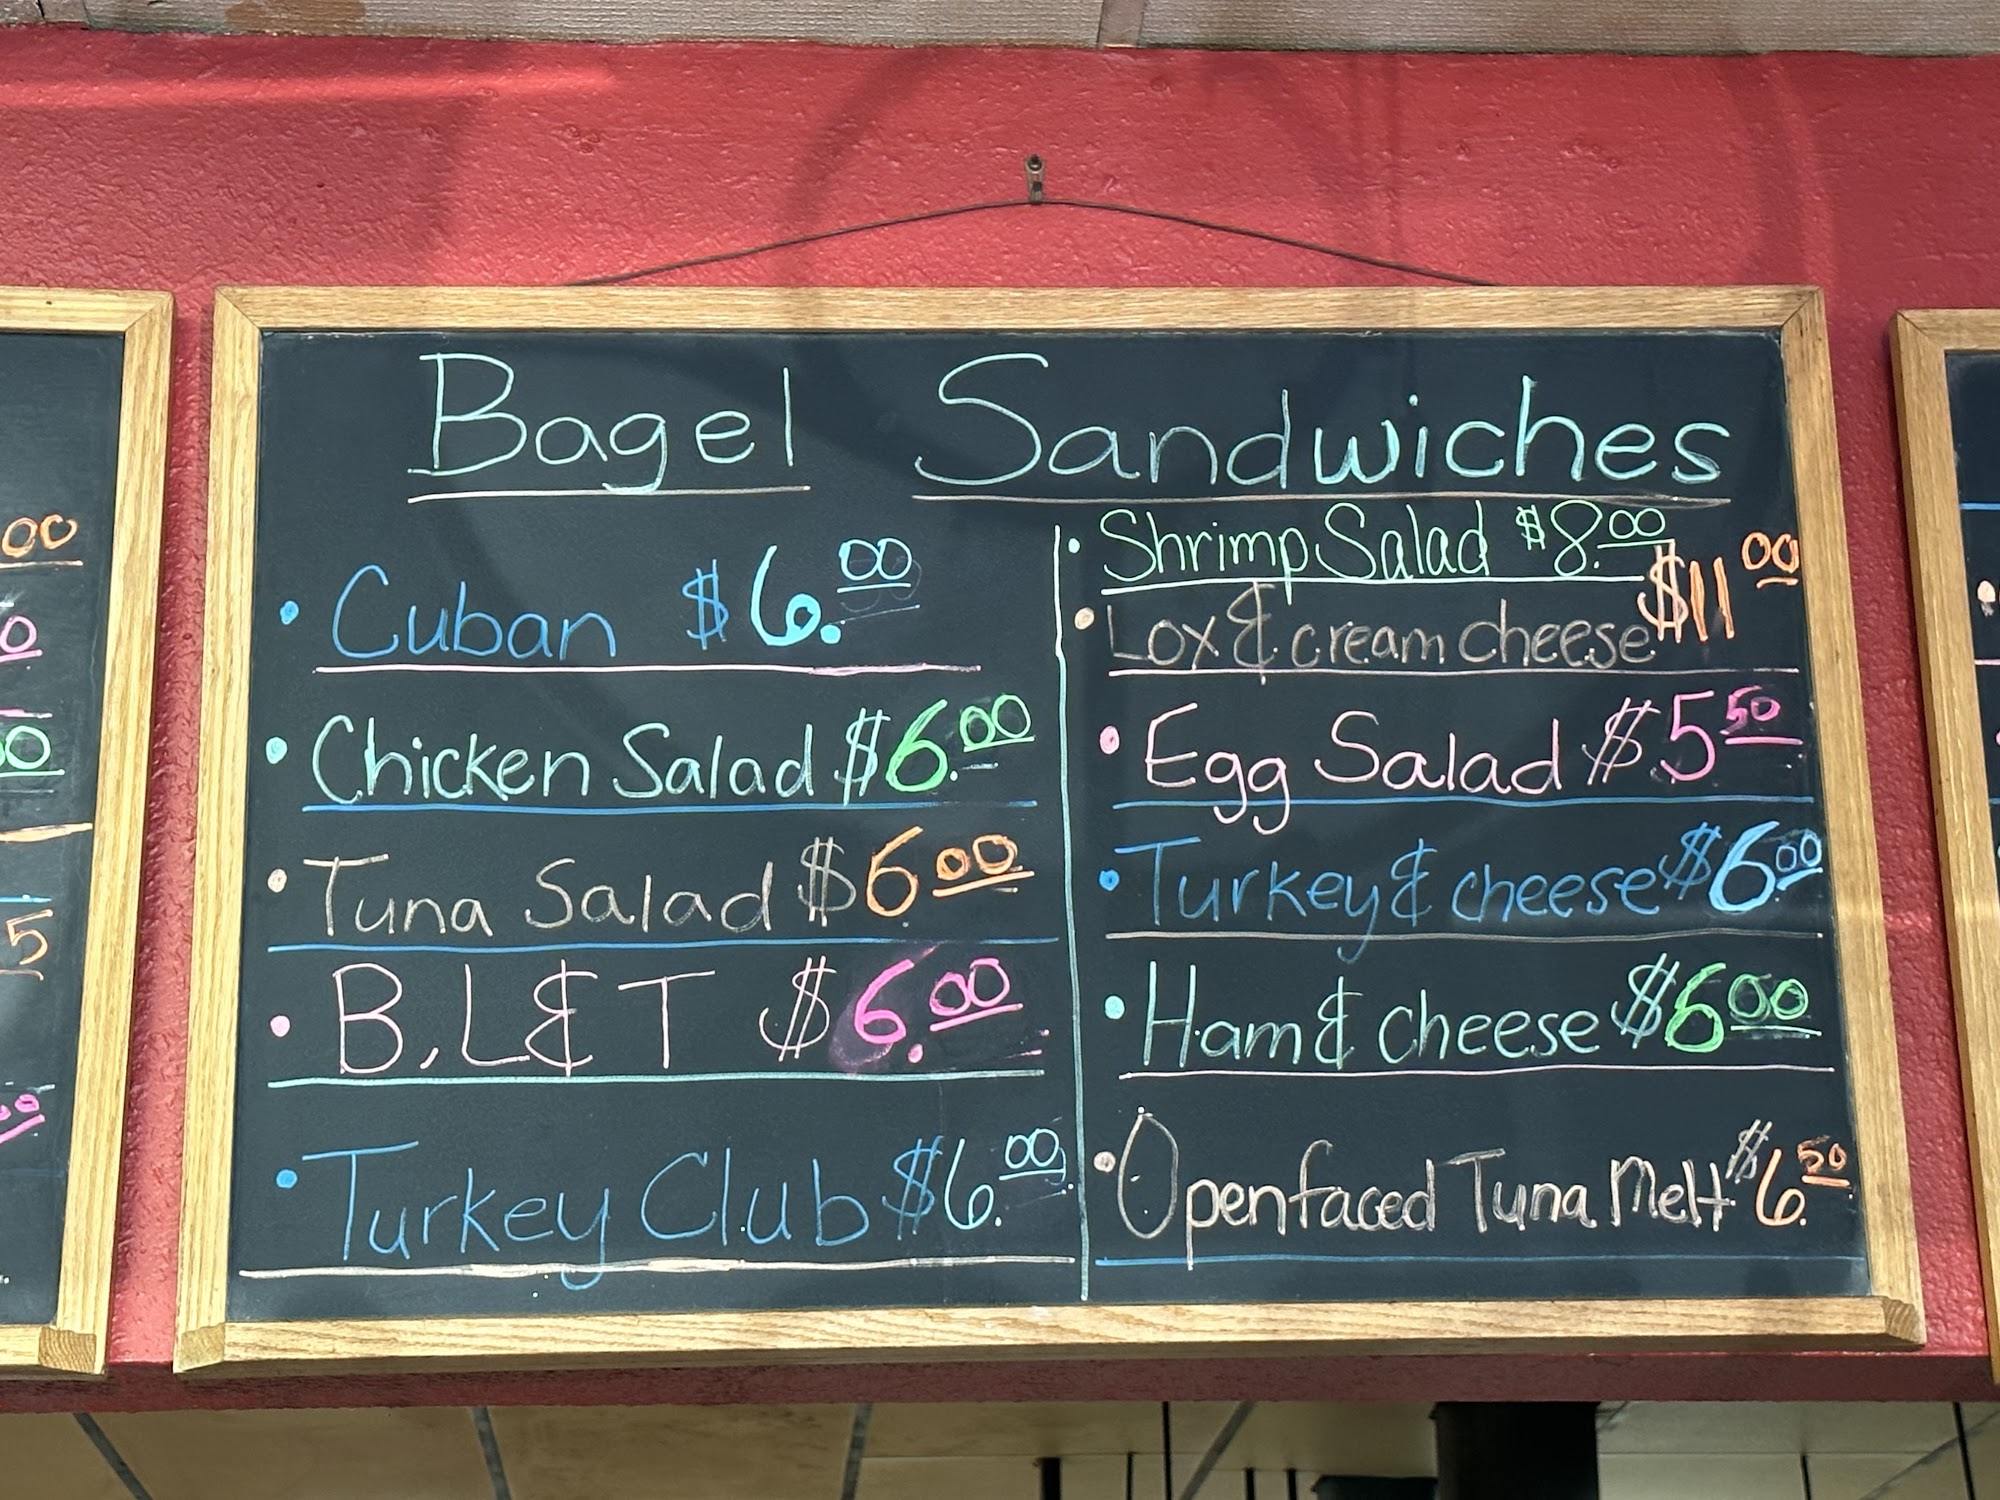 Bagel Sandwiches
• Cuban $6.00
• Chicken Salad $6.00
• Tuna Salad $6.00
• B, L & T $6.00
• Turkey Club $6.00
• Shrimp Salad $8.00
• Lox & cream cheese $11 00
• Egg Salad $5.50
• Turkey & cheese $6 00
• Ham & cheese $6 00
• Openfaced Tuna Melt $6.50
00
0
00
5